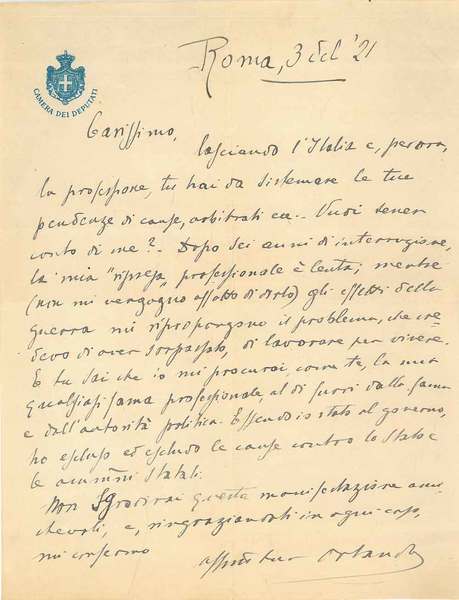 CAMERA DEI DEPUTATI
Roma, 3 '21
Carissimo,
lasciando l'Italia e, perora,
la professione, tu hai da sistemare le tue
pendenze di cause, arbitrati ecc.. Vuoi tener
conto di me? - Dopo sei anni di interruzione,
la mia "ripresa" professionale è lenta; mentre
(non mi vergogno affatto di dirlo) gli effetti della
guerra mi ripropongono il problema, che cre
devo di aver sorpassato, di lavorare per vivere.
E tu sai che io mi procurai, come te, la mia
qualsiasi fama professionale, al di fuori dalla fama
e dall'autorità politica. Essendo io stato al governo,
ho escluso ed escludo le cause contro lo Stato e
le ammni Statali.
Non sgradirai questa manifestazione ami
chevole, e, ringraziandoti in ogni caso,
mi confermo
Orlando